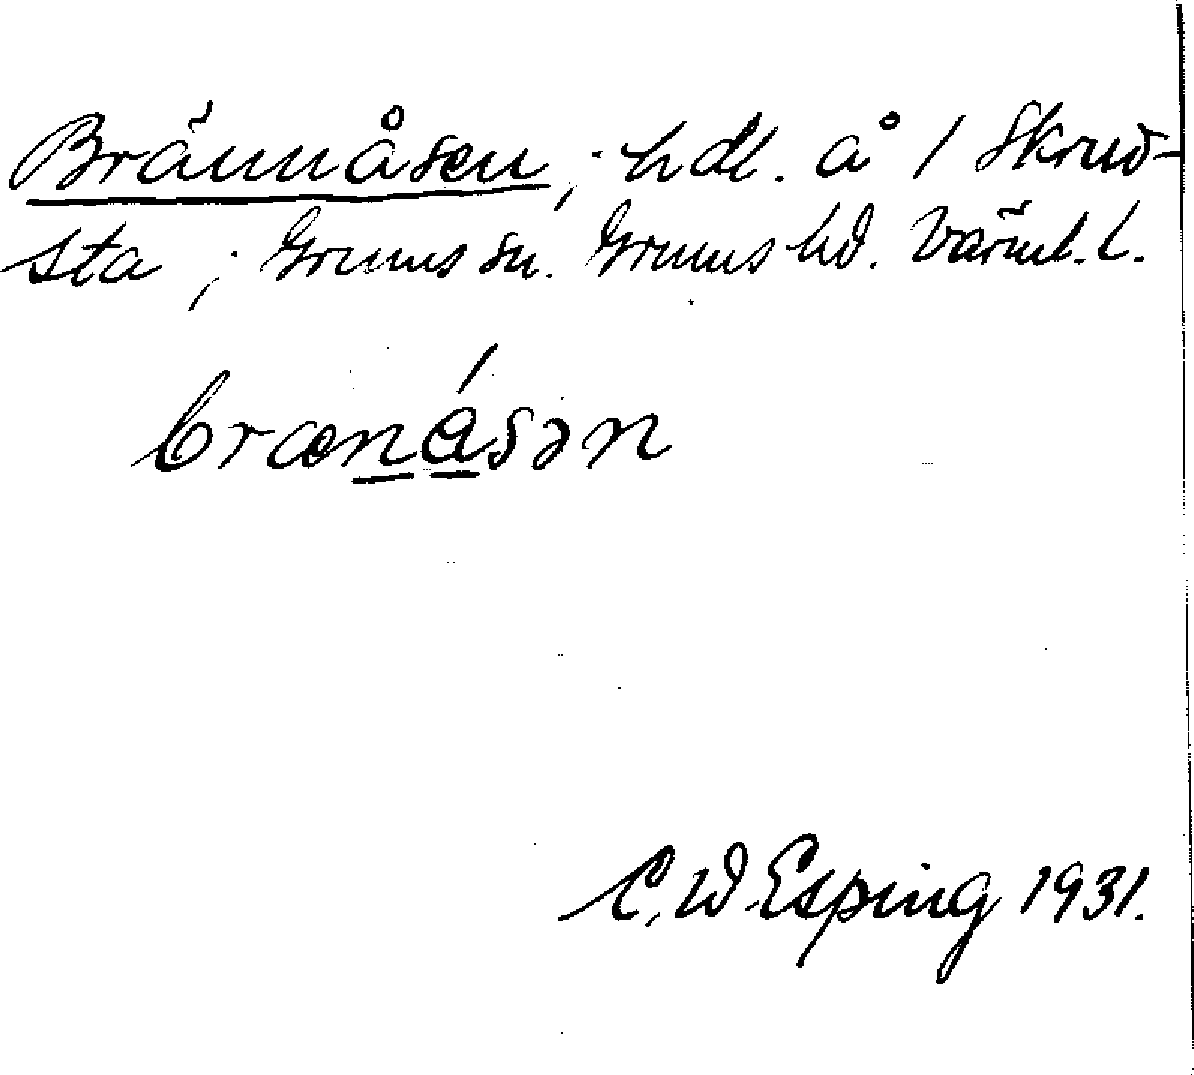 Brännåsen, hdl. å 1 Skruv-
sta, Grums sn. Grums hd. Värml. l.
brænåsən
C. W. Esping 1931.